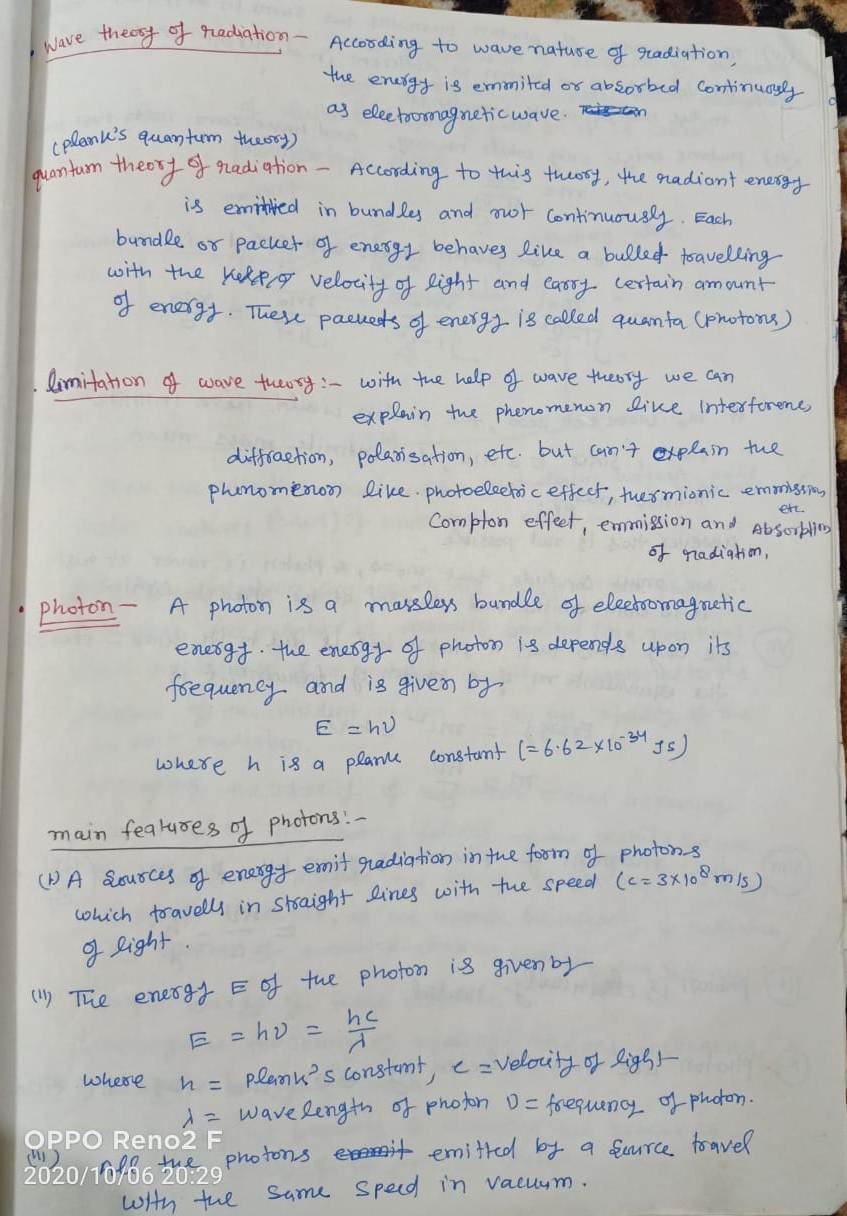 . Wave theory of radiation – According to wave nature of radiation,
the energy is emmited or absorbed continuously
as electromagnetic wave.
(plank's quantum theory)
quantum theory of radiation – According to this theory, the radiant energy
is emitted in bundles and not continuously. Each
bundle or packet of energy behaves like a bulled travelling
with the velocity of light and carry certain amount
of energy. These packets of energy is called quanta (photons)
. limitation of wave theory :– with the help of wave theory we can
explain the phenomenon like Interference,
diffraction, polarisation, etc. but can't explain the
phenomenon like photoelectric effect, thermionic emmission,
etc.
Compton effect, emmission and Absorption
of radiation,
• photon – A photon is a massless bundle of electromagnetic
energy. the energy of photon is depends upon its
frequency and is given by
E = hν
where h is a plank constant (= 6.62 × 10⁻³⁴ Js)
main features of photons :–
(I) A sources of energy emit radiation in the form of photons
which travells in straight lines with the speed (c = 3×10⁸ m/s)
of light.
(II) The energy E of the photon is given by
E = hν = hc/λ
where h = plank's constant, c = velocity of light
λ = wavelength of photon ν = frequency of photon.
OPPO Reno2 F
(III) All the photons emitted by a source travel
2020/10/06 20:29
with the same speed in vacuum.